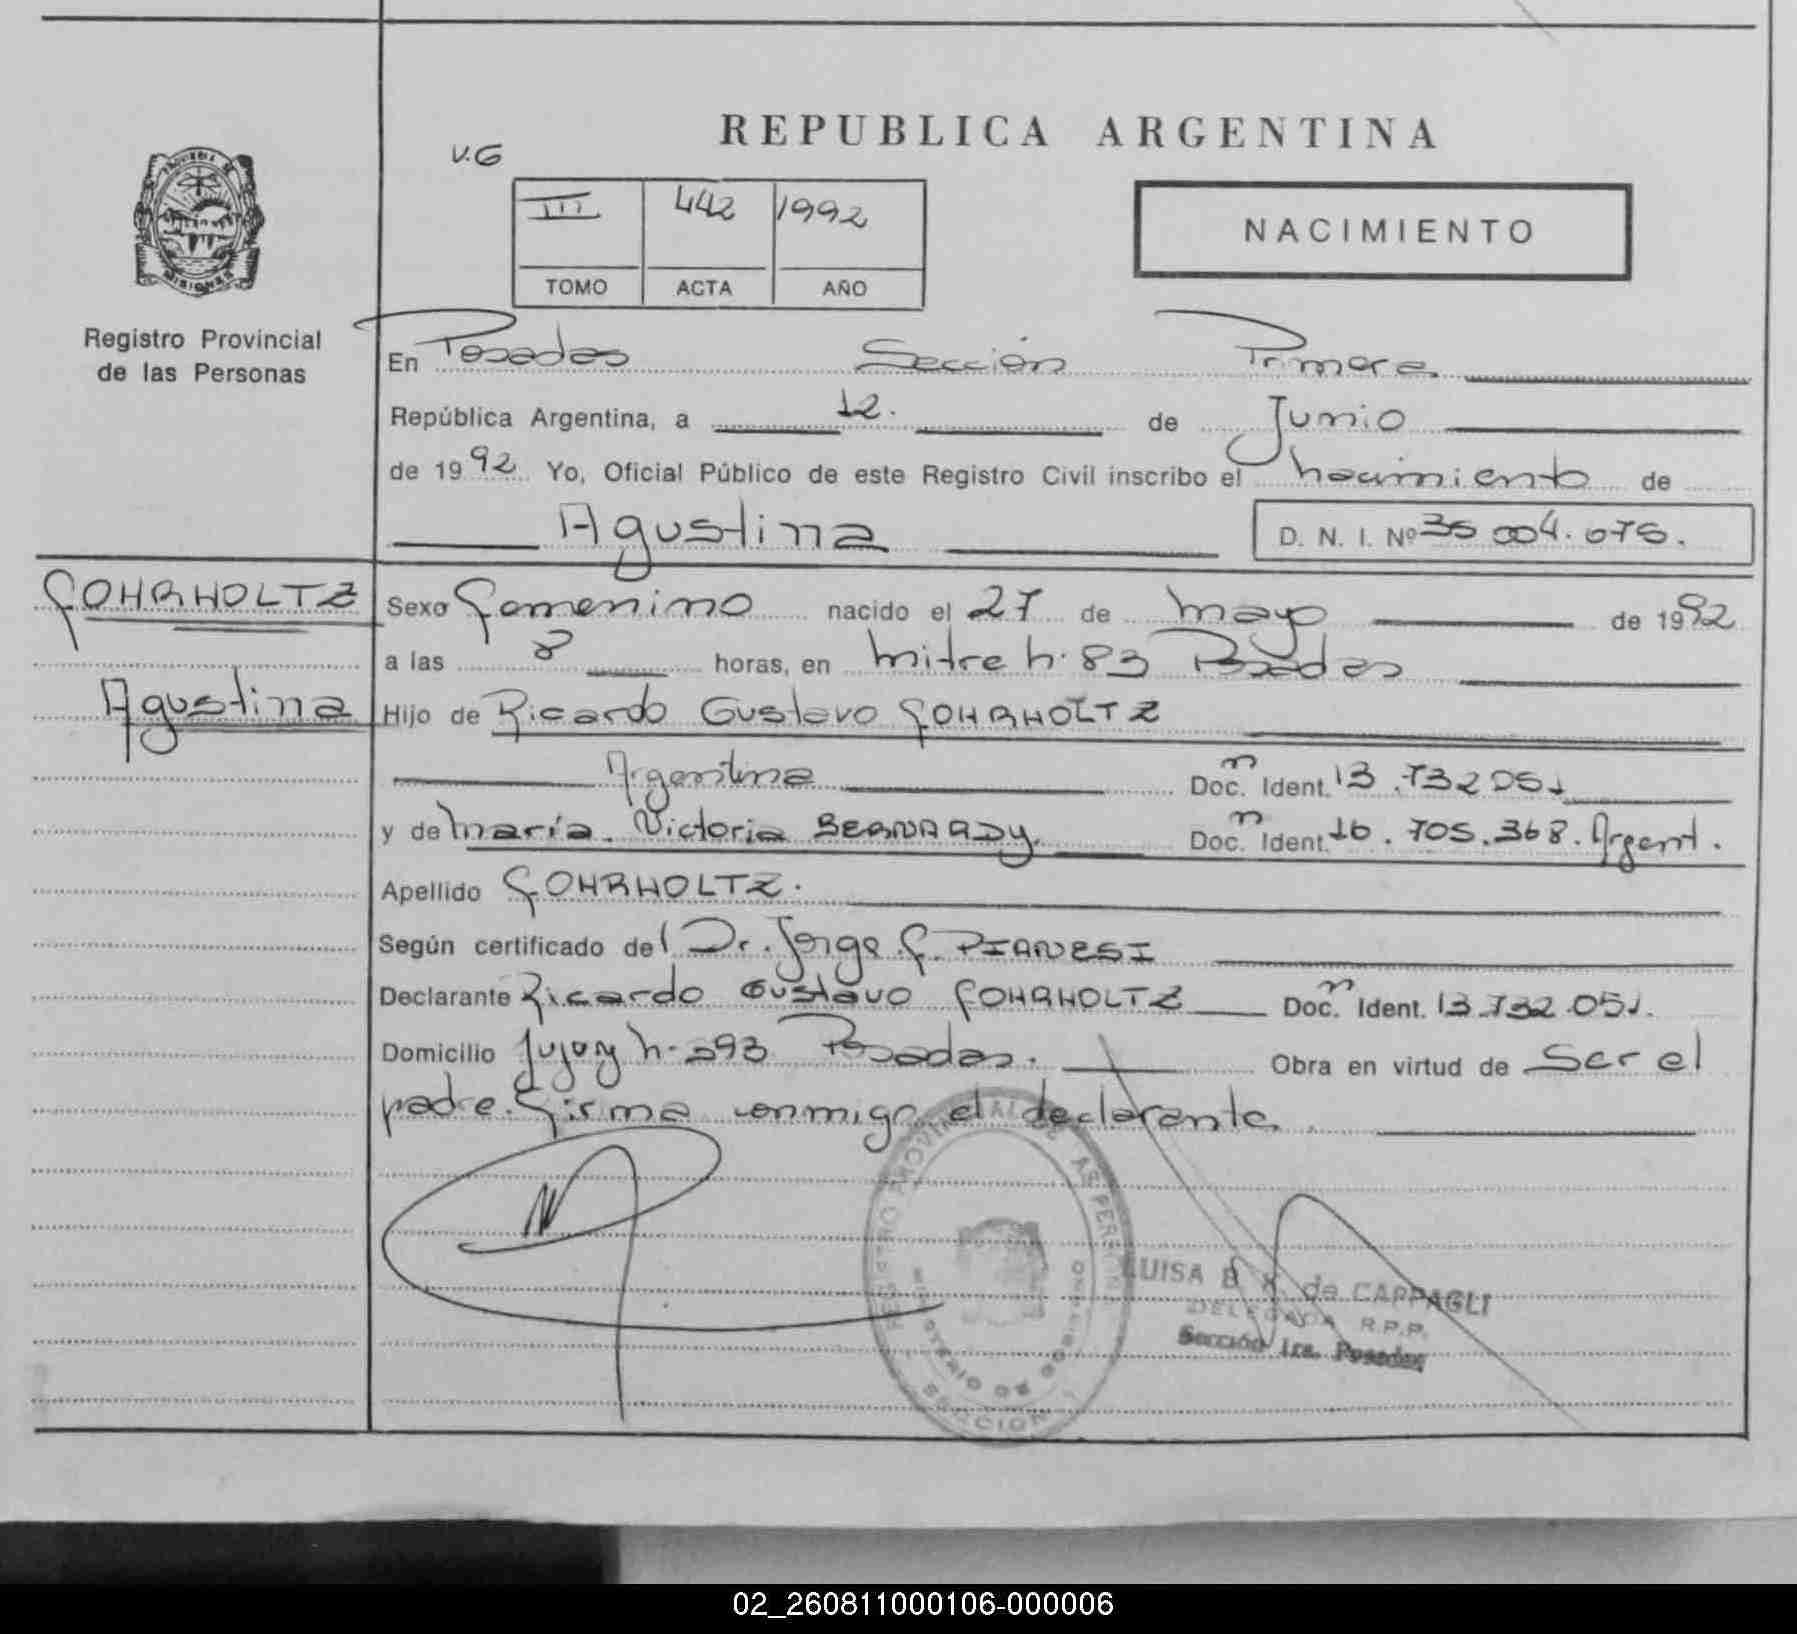 REPUBLICA ARGENTINA
V.G
III 442 1992
TOMO ACTA AÑO
NACIMIENTO
PROVINCIA DE MISIONES
Registro Provincial
de las Personas
En Posadas Sección Primera
República Argentina, a 12. de Junio
de 1992 Yo, Oficial Público de este Registro Civil inscribo el nacimiento de
Agustina D. N. I. Nº 35 004.075.
FOHRHOLTZ
Agustina
Sexo Femenino nacido el 27 de mayo de 1992
a las 8 horas, en Mitre n. 83 Posadas
Hijo de Ricardo Gustavo FOHRHOLTZ
Argentina Doc. n Ident. 13.732051
y de María Victoria BERNARDY. Doc. n Ident. 16.705.368. Argent.
Apellido FOHRHOLTZ.
Según certificado del Dr. Jorge F. PIANESI
Declarante Ricardo Gustavo FOHRHOLTZ Doc. n Ident. 13.732.051.
Domicilio Jujuy n. 393 Posadas. Obra en virtud de Ser el
padre. Firma conmigo el declarante.
REGISTRO PROVINCIAL DE LAS PERSONAS
MINISTERIO DE GOBIERNO
SECCION
LUISA B K de CAPPAGLI
DELEGADA R.P.P.
Sección 1ra. Posadas
02_260811000106-000006